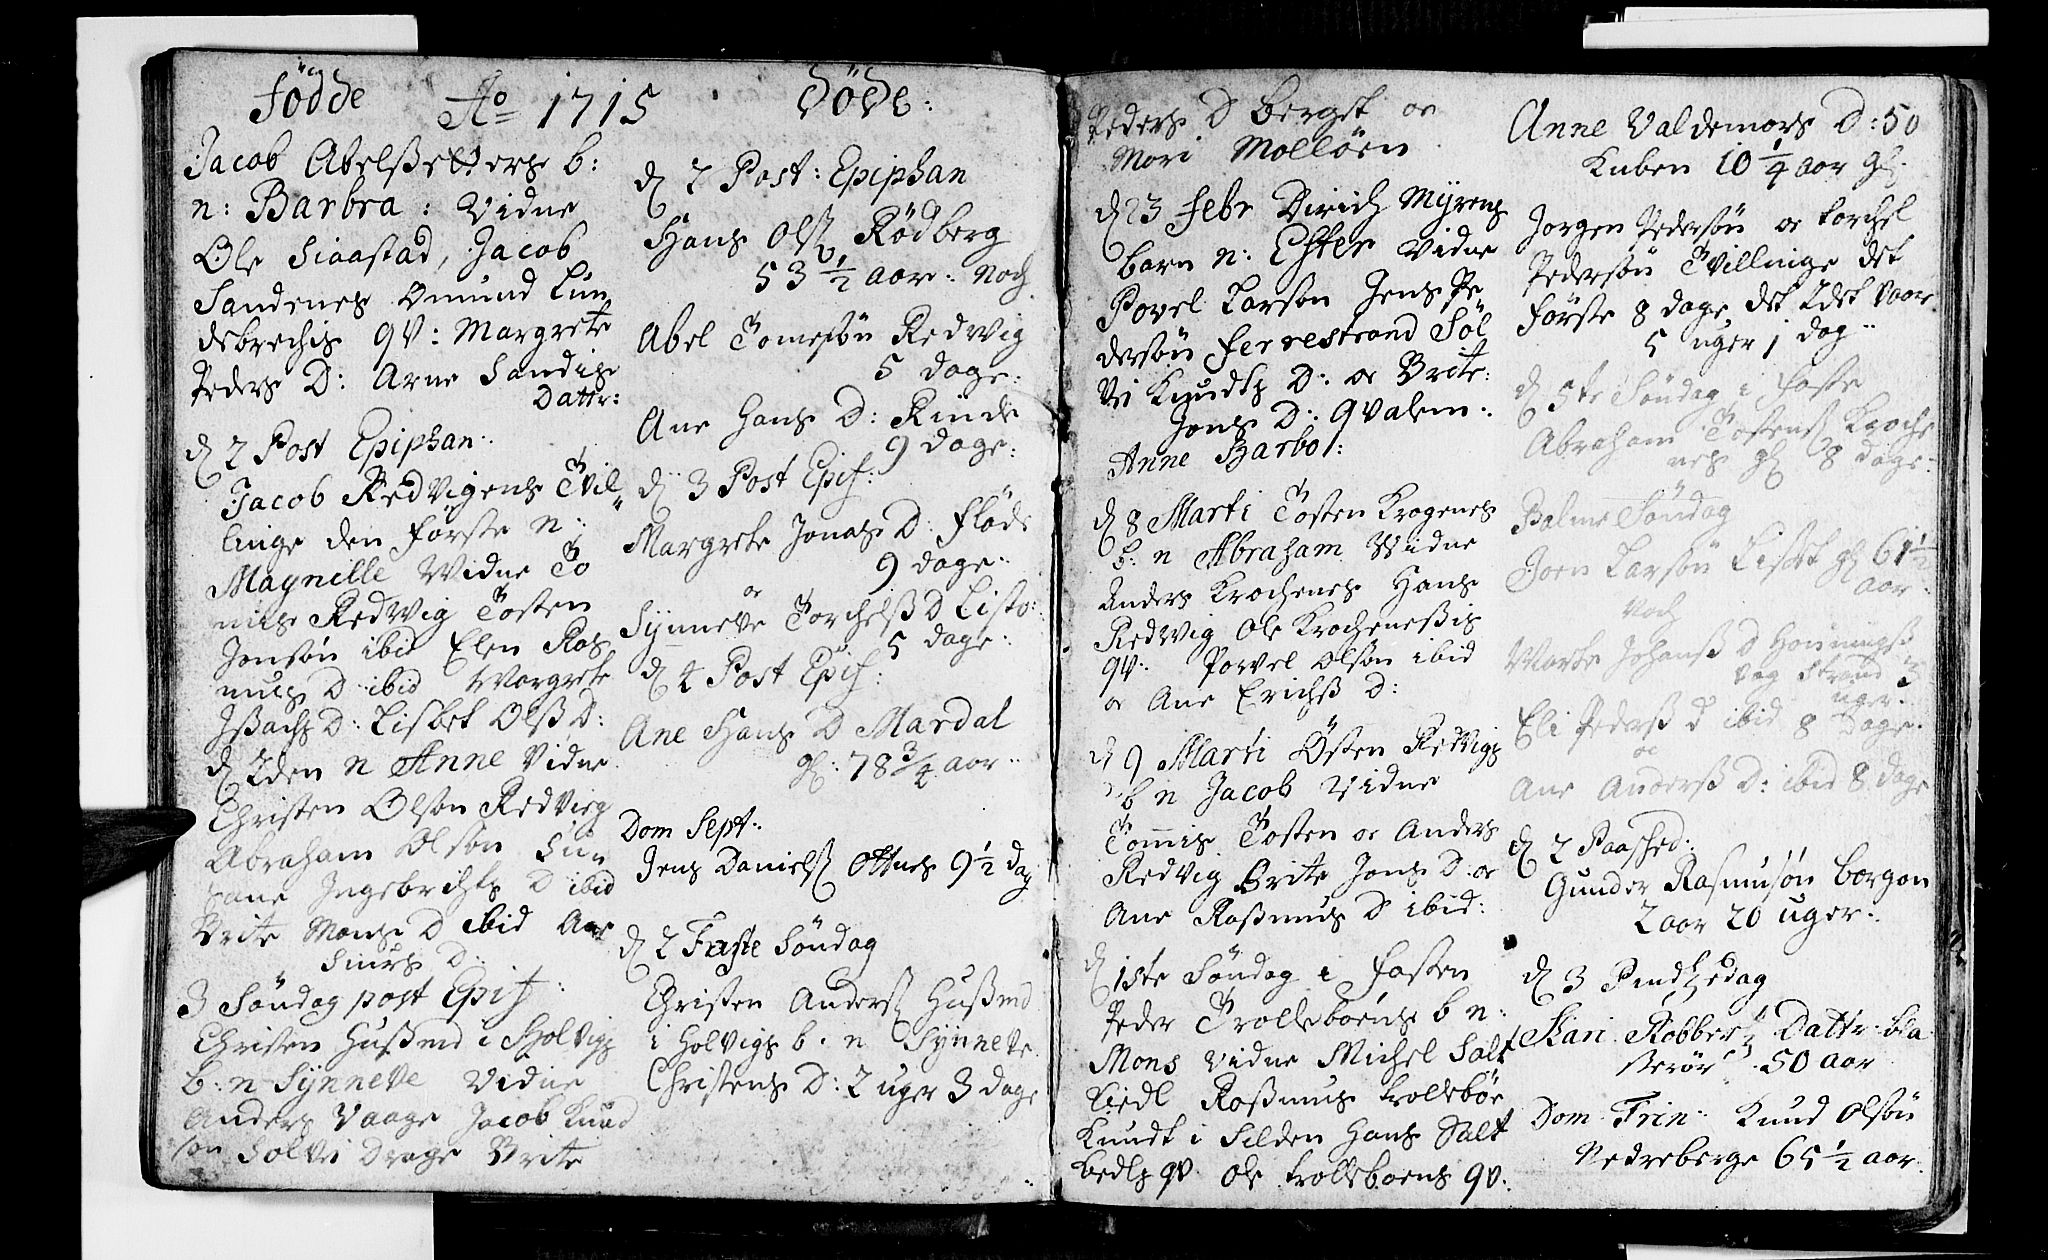 Födde Ao 1715 Döde:
Jacob Abelßetters b:
n: Barbra: Vidne
Ole Siaastad, Jacob
Sandenes Omund Lun
debrechs qv: Margrete
Peders D: Arne Sandis
Dattr:
d 2 Post Epiphan:
Jacob Redvigens Tvil
linge den förste n:
Magnelle Widne To
mis Redwig Tosten
Jonsön ibid Elen Ras
mus D ibid Margrete
Jßachs D: Lisbet Olß D:
d 2den n Anne Vidne
Christen Olson Redvieg
Abraham Olson
Ingebrichts D ibid
Brite Mons D ibid Ane
Siurs D:
3 Söndag post Epif:
Christen Hußmd i Holvigs
b: n Synneve Vidne
Anders Vaage Jacob Knud
son Solvei Drage Brite
d 2 Post: Epiphan
Hans Olß Rödberg
53 1/2 aar: Noch
Abel Tomesön Redvig
5 dage:
Ane Hans D: Rinde
9 dage:
d 3 Post Epif:
Margrete Jonas D: Flöde
9 dage:
oc
Synneve Torchelß D Listo:
5 dage:
d 4 Post Epif:
Ane Hans D Mardal
gl: 78 3/4 aar:
Dom Sept:
Jens Danielß Ottnes 9 1/2 dag
d 2 Faste Söndag
Christen Anderß Hußmd
i Holvigs b. n Synneve
Christens D: 2 uger 3 dage
Peders D Bergset oc
Mari Mollöen
d 23 Febr Dirich Myrens
barn n: Ester Vidne
Povel Larson Jens Pe
dersön Ferrestrand Söl
vi Knudts D: oc Brite:
Jons D: Qvalem:
Anne Barbo:
d 8 Marti Tosten Krogenes
b: n Abraham Vidne
Anders Krochenes Hans
Redwig Ole Krocheneßis
qv: Povel Olson ibid
oc Ane Erichß D:
d 9 Marti Östen Redvigs
b n Jacob Vidne
Tommis Tosten oc Anders
Redvig Brite Jons D: oc
Ane Raßmus D ibid:
d 1ste Söndag i Fasten
Peder Trolleböens b n:
Mons Vidne Michel Salt
Raßmus Trollebör
Knudt i Silden Hans Salt
qv Ole Trolleboens qv:
Anne Valdemars D: 50
Kuben 10 1/4 aar gl.
Jorgen Pedersön oc Torchel
Pedersön Tvillinge det
förste 8 dage det 2det vaar
5 uger 1 dag:
d 5te Söndag i Faste
Abraham Tostenß Kroche
nes gl 8 dage:
Palme Söndag
Joen Larsön Lisset gl 61 1/2
aar
Noch
Marte Johanß D Honnings
vog strand 3
uger:
Eli Pederß d ibid 8 dage:
oc
Ane Anderß D: ibid 8 dage
d 2 Paasked:
Gunder Rasmusön Borgon
2 aar 20 uger:
d 3 Pindzedag
Kari Robbertz Dattr
50 aar
Dom: Trin: Knud Olsön
Nedreberge 65 1/2 aar